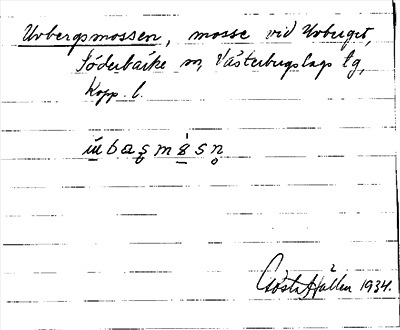 Uvbergsmossen, mosse vid Uvberget,
Söderbärke sn, Västerbergslags tg,
Kopp. l.
ùbasmɞsn
Gösta Hallén 1934.